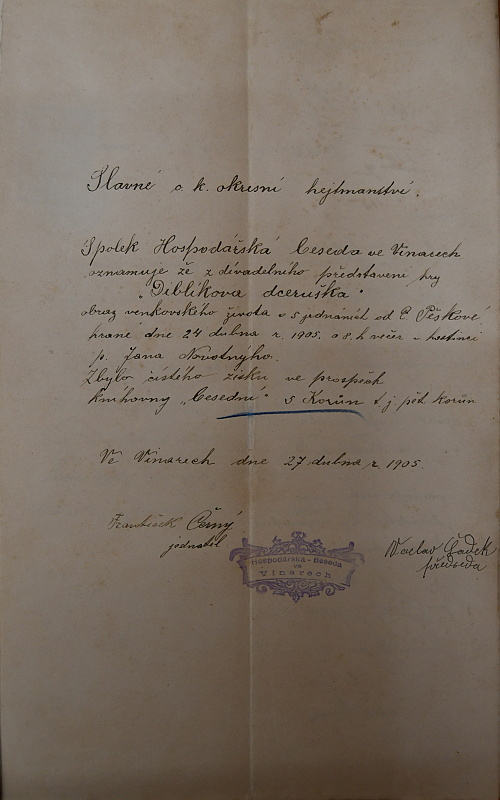 Slavné c. k. okresní hejtmanství.
Spolek Hospodářská Beseda ve Vinarech
oznamuje že z divadelního představení hry
„Diblíkova dceruška"
obraz venkovského života v 5 jednáních od E. Peškové
hrané dne 24 dubna r. 1905. o 8. h večer v hostinci
p. Jana Novotnýho.
Zbylo čistého zisku ve prospěch
knihovny „Besední" 5 Korun t. j. pět korun
Ve Vinarech dne 27 dubna r. 1905.
František Černý
jednatel
Hospodářská - Beseda
ve
Vinarech
Václav Čadek
předseda